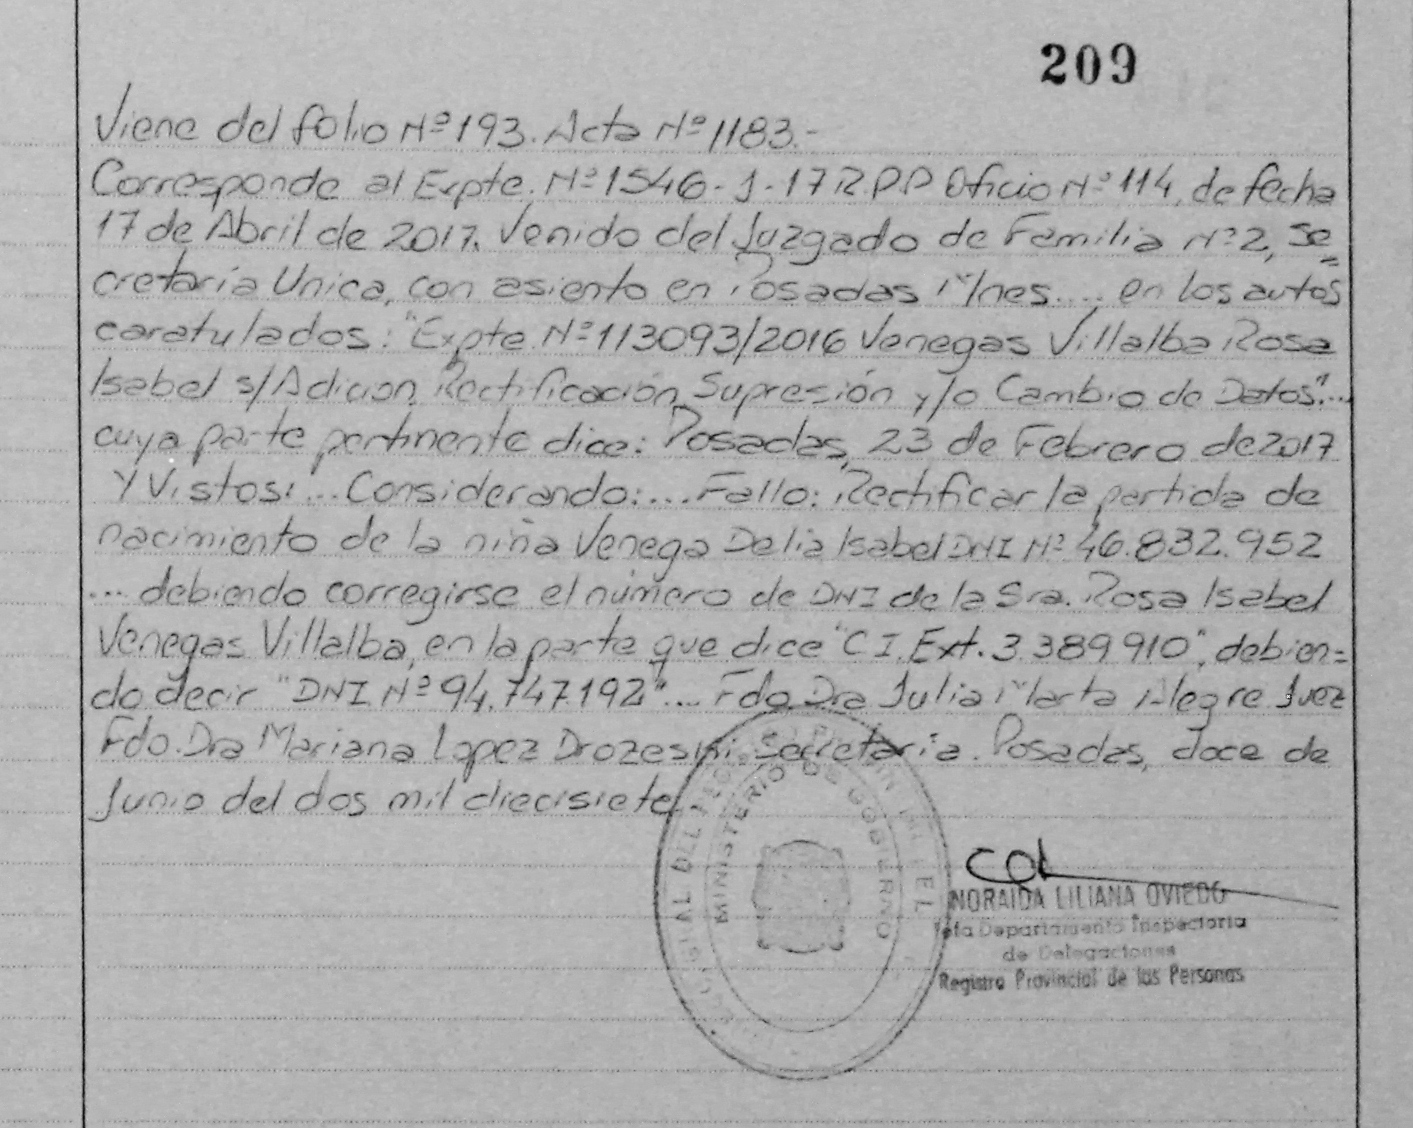 209
Viene del folio Nº 193. Acta Nº 1183.-
Corresponde al Expte. Nº 1546-J-17 R.P.P Oficio Nº 114, de fecha
17 de Abril de 2017. Venido del Juzgado de Familia Nº 2, Se=
cretaría Unica, con asiento en Posadas Mnes.... en los autos
caratulados: "Expte Nº 113093/2016 Venegas Villalba Rosa
Isabel s/Adicion, Rectificación, Supresión y/o Cambio de Datos"...
cuya parte pertinente dice: Posadas, 23 de Febrero de 2017
Y Vistos:... Considerando:... Fallo: Rectificar la partida de
nacimiento de la niña Venega Delia Isabel DNI Nº 46.832.952
... debiendo corregirse el número de DNI de la Sra. Rosa Isabel
Venegas Villalba, en la parte que dice "C I. Ext. 3.389910", debien=
do decir "DNI. Nº 94.747.192"... Fdo. Dra Julia Marta Alegre Juez
Fdo. Dra Mariana Lopez Drozeski. Secretaria. Posadas, doce de
Junio del dos mil diecisiete.
MINISTERIO DE GOBIERNO
NORAIDA LILIANA OVIEDO
Jefa Departamento Inspectoria
de Delegaciones
Registro Provincial de las Personas